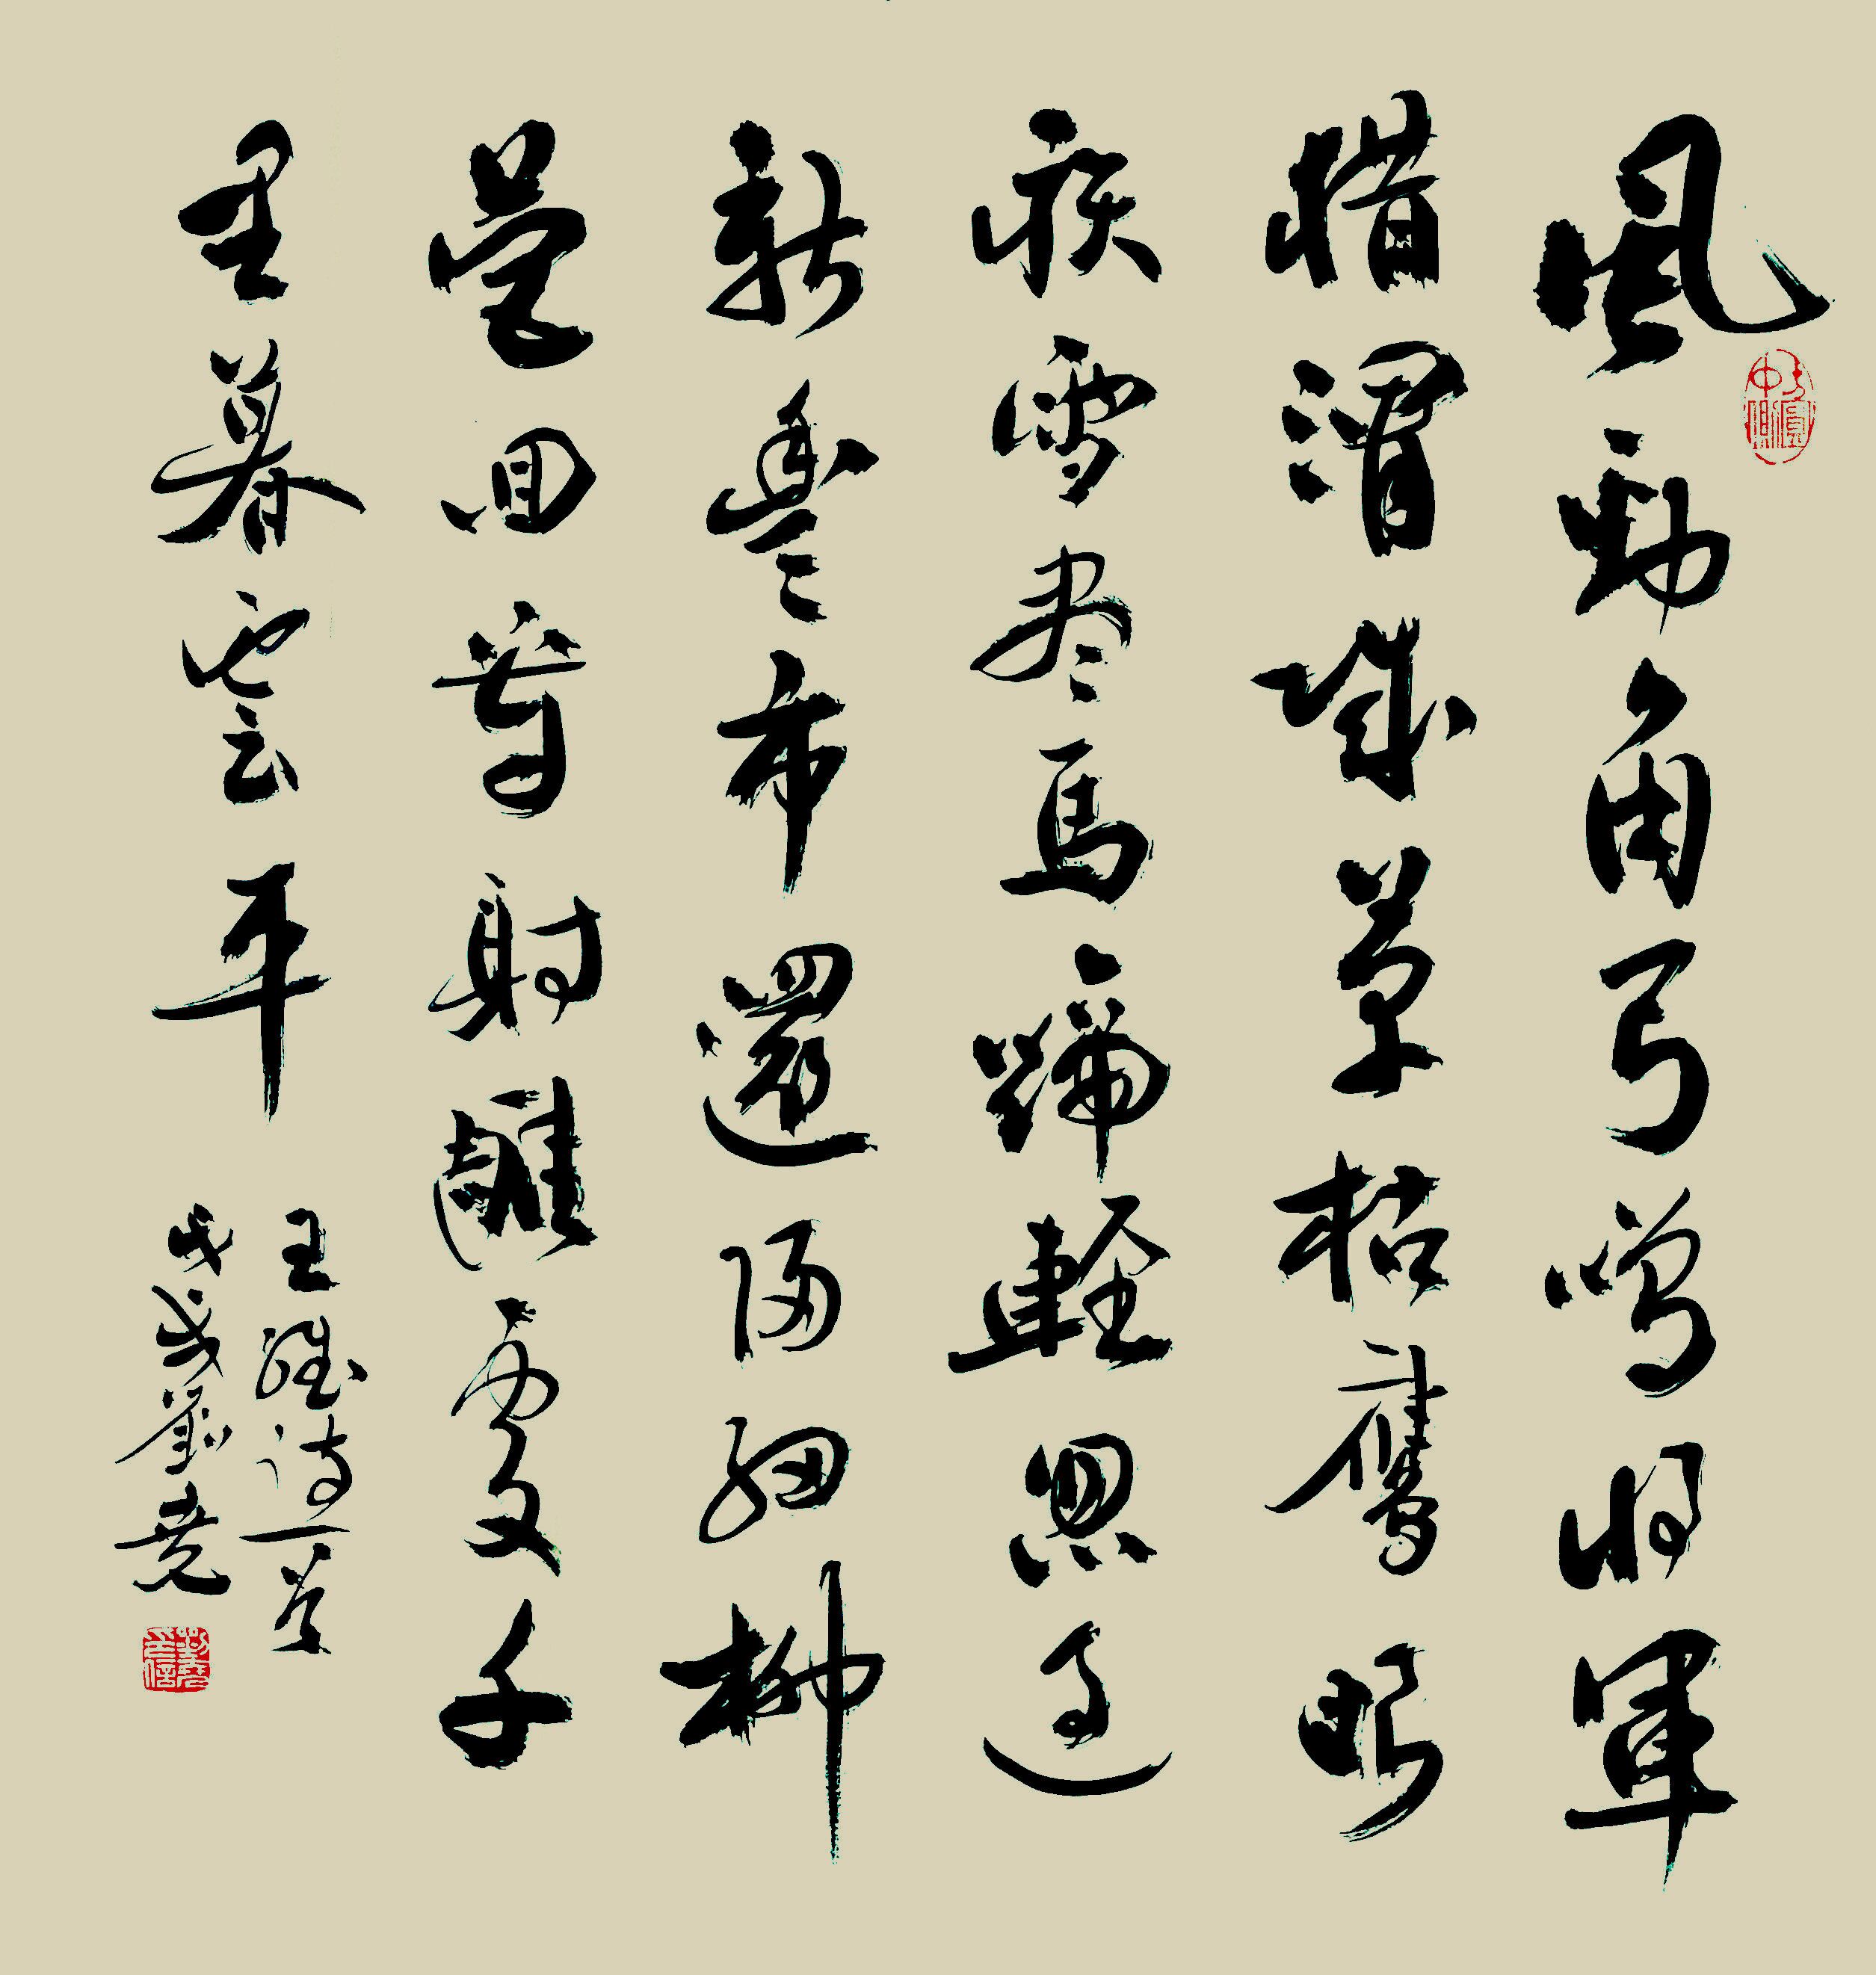 風勁角弓鳴将軍
猎渭城草枯鷹眼
疾雪尽馬蹄輕忽过
新豐市還歸細柳
營回看射雕處千
里暮雲平
王維詩一首
戊戌劉